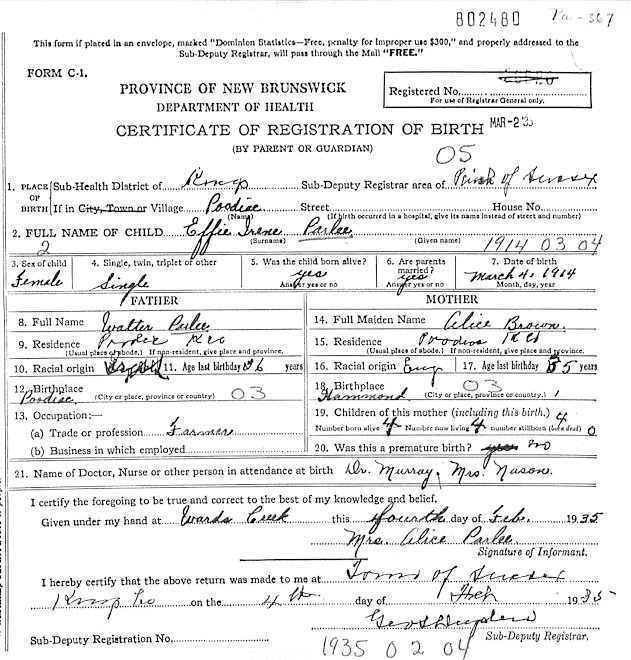 802480 Pa-367
This form if placed in an envelope, marked "Dominion Statistics—Free, penalty for improper use $300," and properly addressed to the
Sub-Deputy Registrar, will pass through the Mail "FREE."
FORM C-1.
PROVINCE OF NEW BRUNSWICK
DEPARTMENT OF HEALTH
Registered No.
For use of Registrar General only.
CERTIFICATE OF REGISTRATION OF BIRTH MAR-2'35
(BY PARENT OR GUARDIAN)
05
1. PLACE OF BIRTH Sub-Health District of Kings Sub-Deputy Registrar area of Parish of Sussex
If in City, Town or Village Poodiac Street House No.
(Name) (If birth occurred in a hospital, give its name instead of street and number)
2. FULL NAME OF CHILD Effie Irene Parlee
(Surname) (Given name)
2 1914 03 04
3. Sex of child 4. Single, twin, triplet or other 5. Was the child born alive? 6. Are parents married? 7. Date of birth
Female Single yes yes March 4, 1914
Answer yes or no Answer yes or no Month, day, year
FATHER MOTHER
8. Full Name Walter Parlee
14. Full Maiden Name Alice Brown.
9. Residence
(Usual place of abode.) If non-resident, give place and province.
15. Residence Poodiac
(Usual place of abode.) If non-resident, give place and province.
10. Racial origin 11. Age last birthday 36 years
16. Racial origin Eng 17. Age last birthday 35 years
12. Birthplace Poodiac 03
(City or place, province or country.)
18. Birthplace Hammond 03
(City or place, province or country.)
13. Occupation:—
(a) Trade or profession Farmer
(b) Business in which employed
19. Children of this mother (including this birth.) 4
Number born alive 4 Number now living 4 number stillborn (born dead) 0
20. Was this a premature birth? yes no
21. Name of Doctor, Nurse or other person in attendance at birth Dr. Murray, Mrs. Nason.
I certify the foregoing to be true and correct to the best of my knowledge and belief.
Given under my hand at Wards Creek this fourth day of Feb. 1935
Mrs. Alice Parlee
Signature of Informant.
I hereby certify that the above return was made to me at Town of Sussex
Kings Co on the 4th day of Feb 1935
Sub-Deputy Registrar.
Sub-Deputy Registration No.
1935 02 04